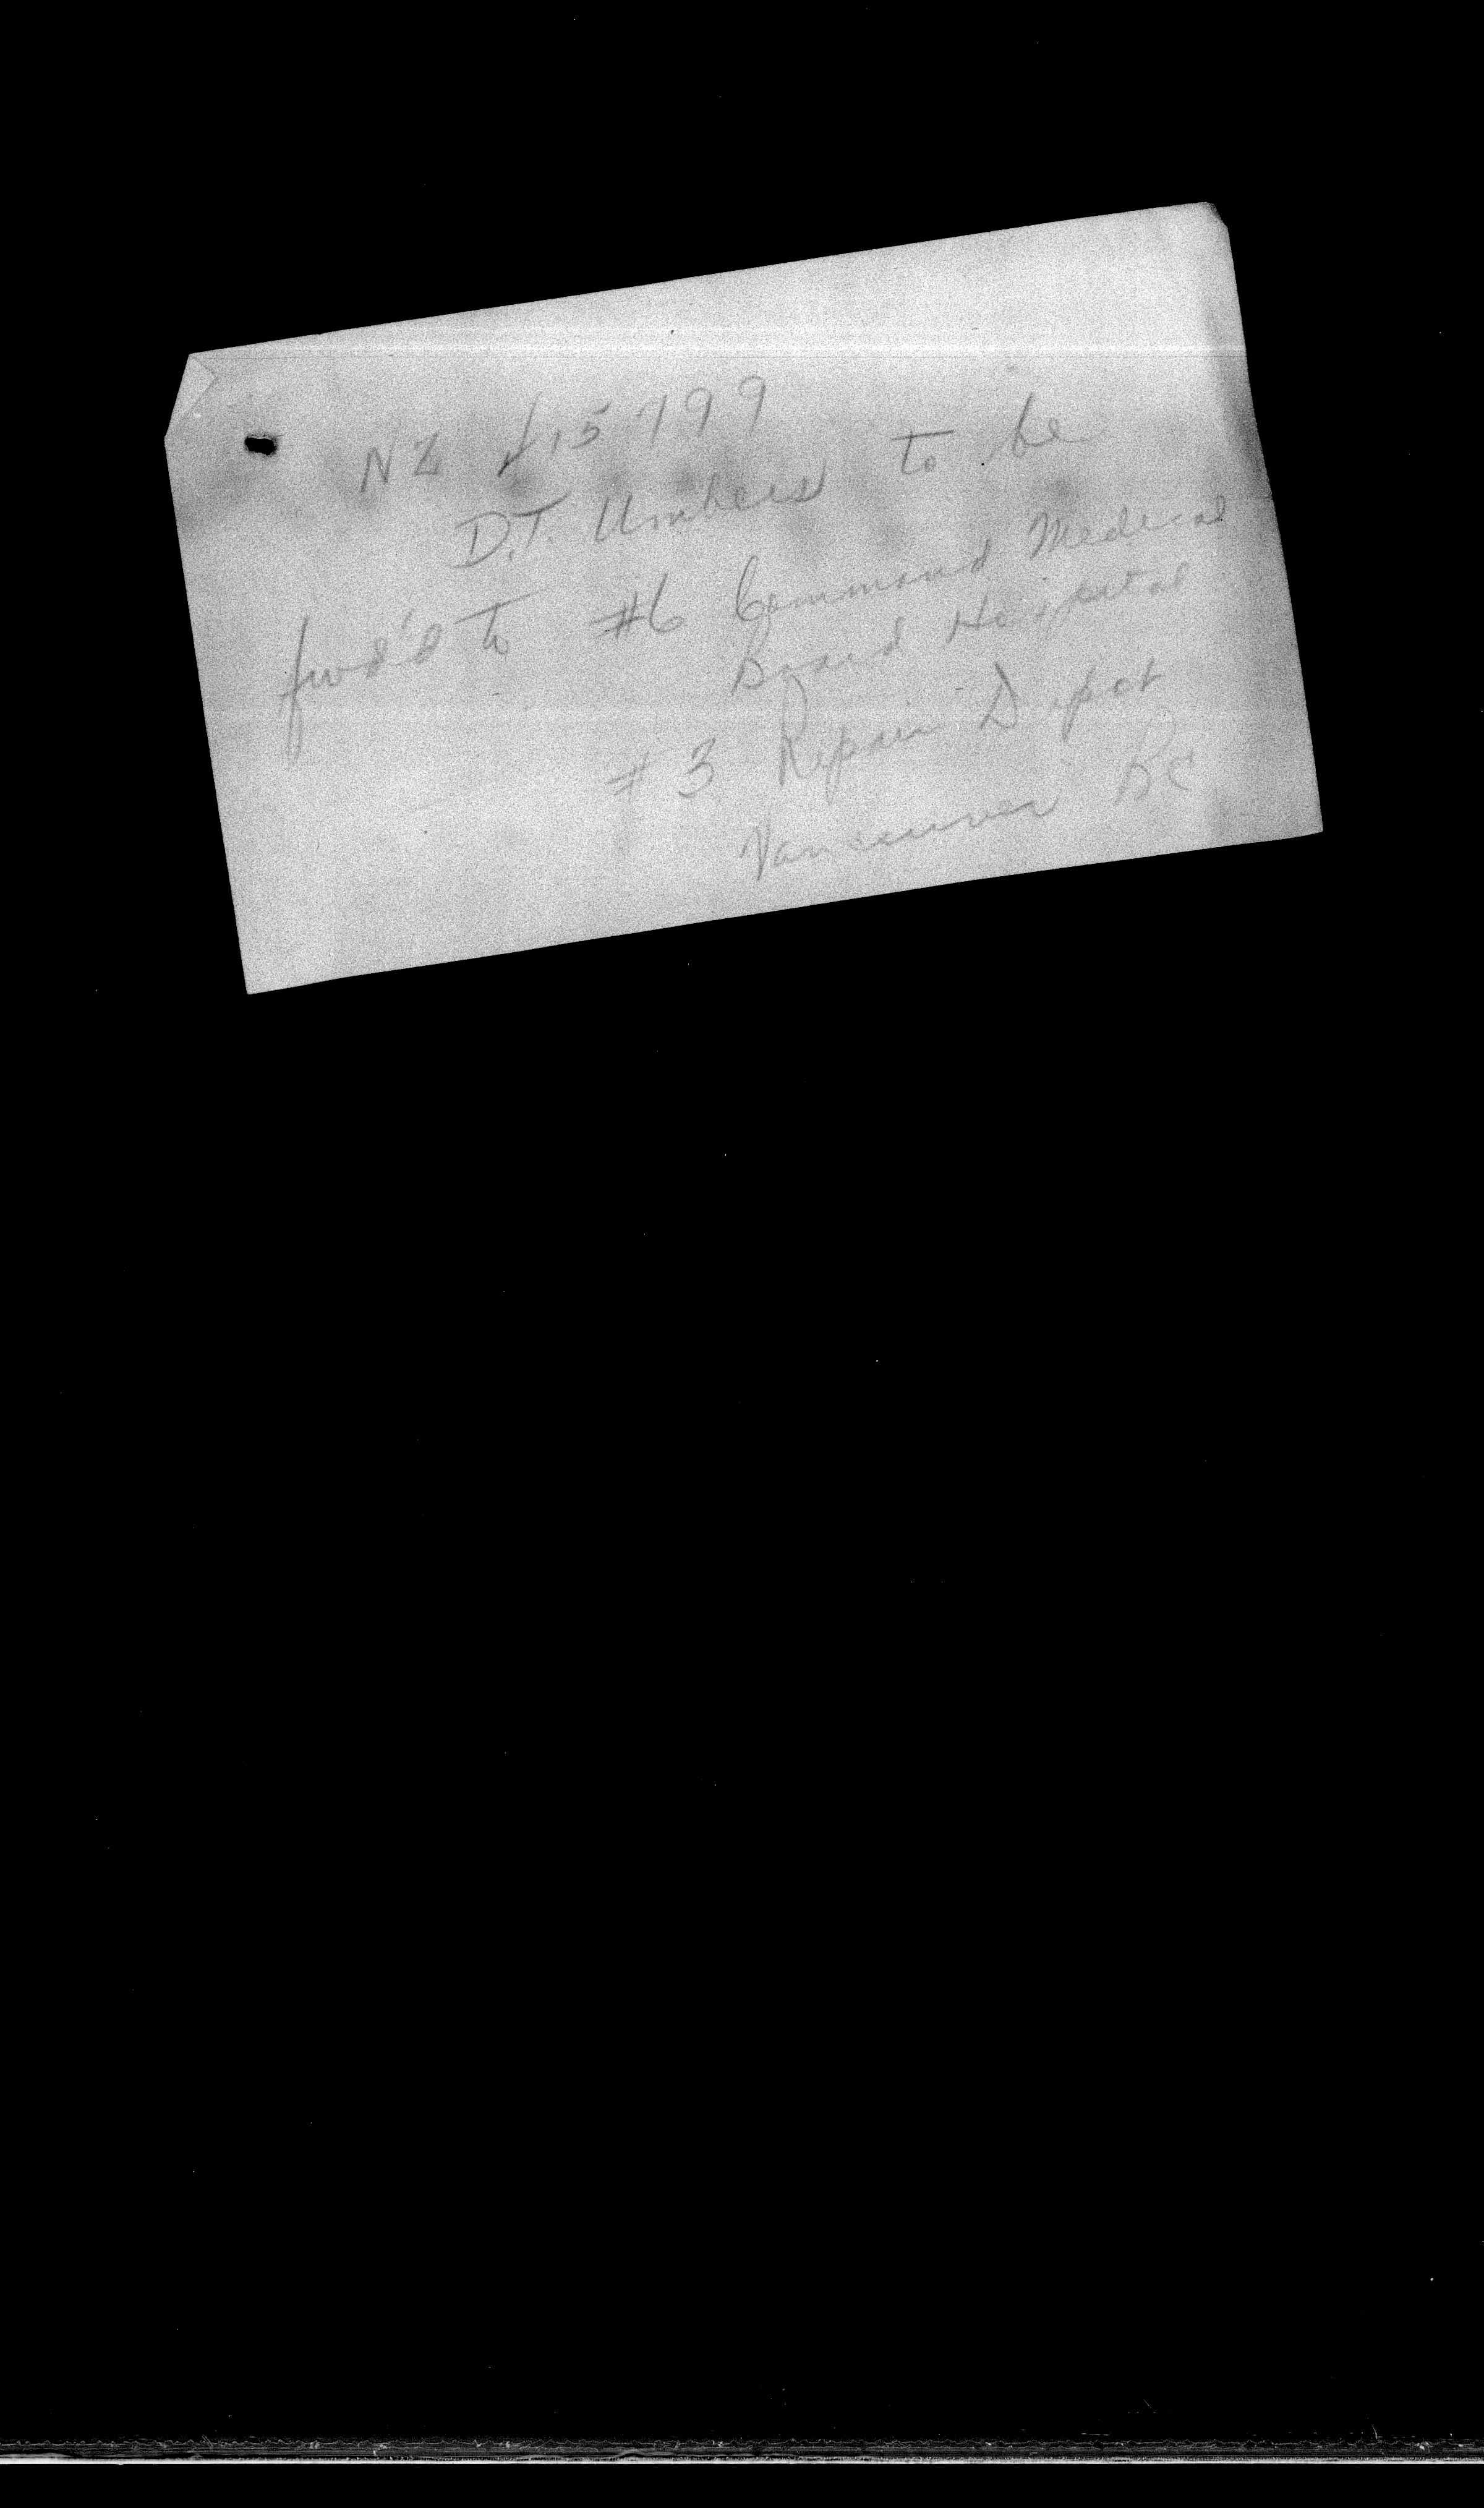 NZ 415799
D.T. Umbers to be
fwd'd to #6 Command Medical
Board Hospital
#3 Repair Depot
Vancouver BC